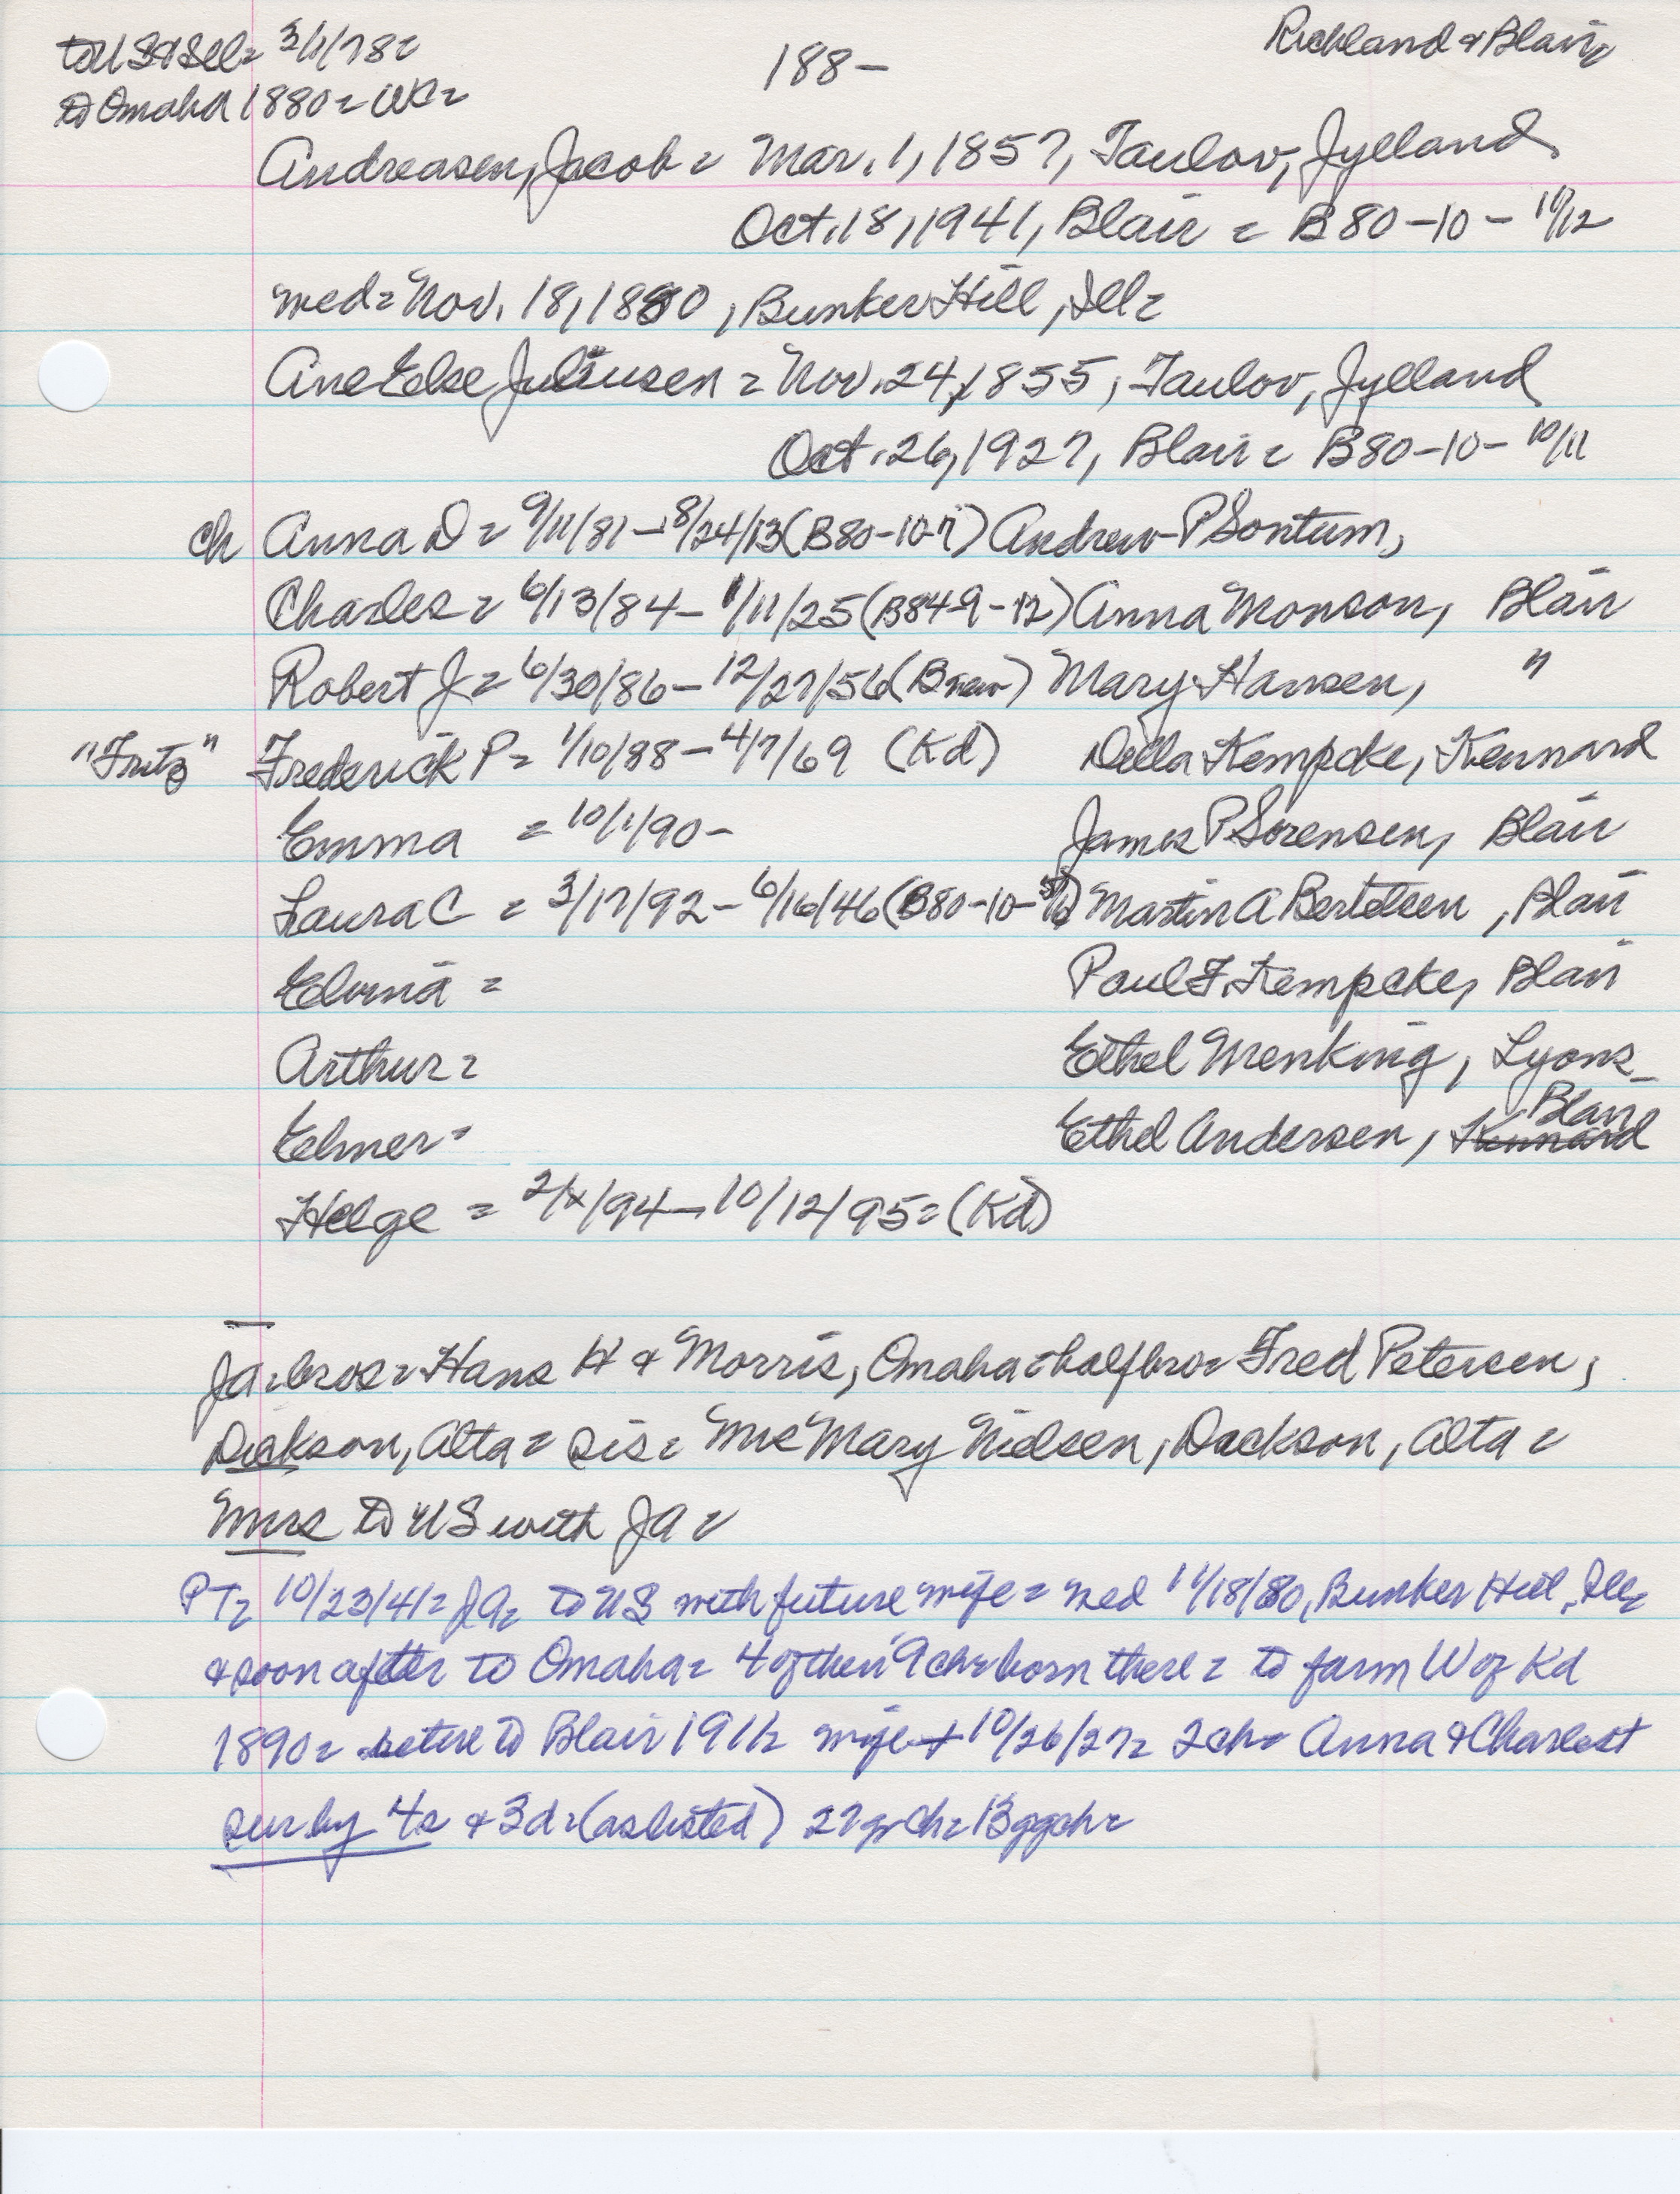 to US & Ill = 3/1/78 =
188-
Richland & Blair =
to Omaha 1880 = WC =
Andreasen, Jacob = Mar. 1, 1857, Taulov, Jylland
Oct. 18, 1941, Blair = B80-10- 11/12
med = Nov. 18, 1880, Bunker Hill, Ill =
Ane Else Juliusen = Nov. 24, 1855, Taulov, Jylland
Oct. 26, 1927, Blair = B80-10- 10/11
ch Anna D = 9/11/81 - 8/24/13 (B80-10-7) Andrew P Sontum,
Charles = 6/13/84 - 1/11/25 (B84-9-12) Anna Monson, Blair
Robert J = 6/30/86 - 12/27/56 (B new) Mary Hansen, "
"Fritz" Frederick P = 1/10/88 - 4/7/69 (Kd) Della Kempcke, Kennard
Emma = 10/1/90 - James P Sorensen, Blair
Laura C = 3/17/92 - 6/16/46 (B80-10- 5/6) Martin A Bertelsen, Blair
Elvina = Paul F. Kempcke, Blair
Arthur = Ethel Menking, Lyons
Elmer = Ethel Andersen, Kennard Blair
Helge = 2/x/94 - 10/12/95 = (Kd)
JA = bros = Hans H & Morris, Omaha = half bro = Fred Petersen,
Dickson, Alta = sis = Mrs Mary Nielsen, Dackson, Alta =
Mrs to US with JA =
PT = 10/23/41 = JA = to US with future wife = med 11/18/80, Bunker Hill, Ill =
& soon after to Omaha = 4 of their 9 ch = born there = to farm W of Kd
1890 = retire to Blair 1911 = wife + 10/26/27 = 2 ch = Anna & Charles +
sur by 4s & 3d = (as listed) 27 gr ch = 13 ggch =